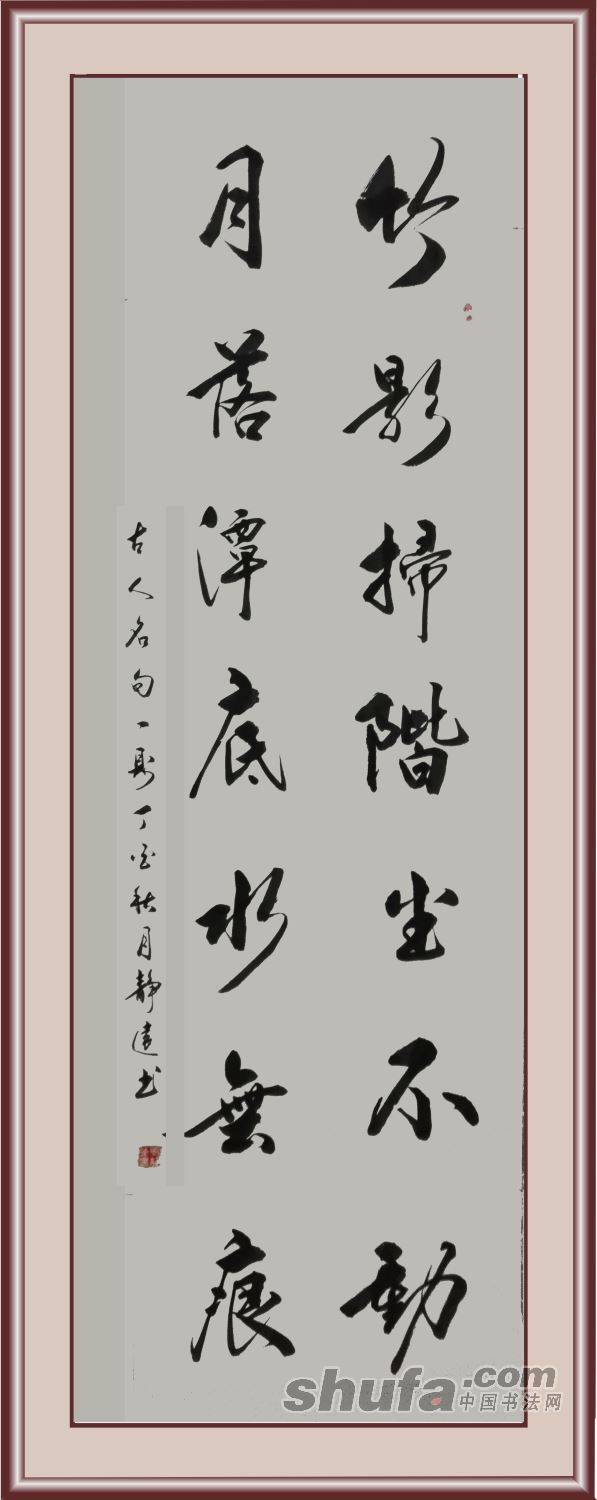 竹影掃階尘不動
月落潭底水無痕
古人名句一聯丁酉秋月靜遠书
shufa.com
中国书法网